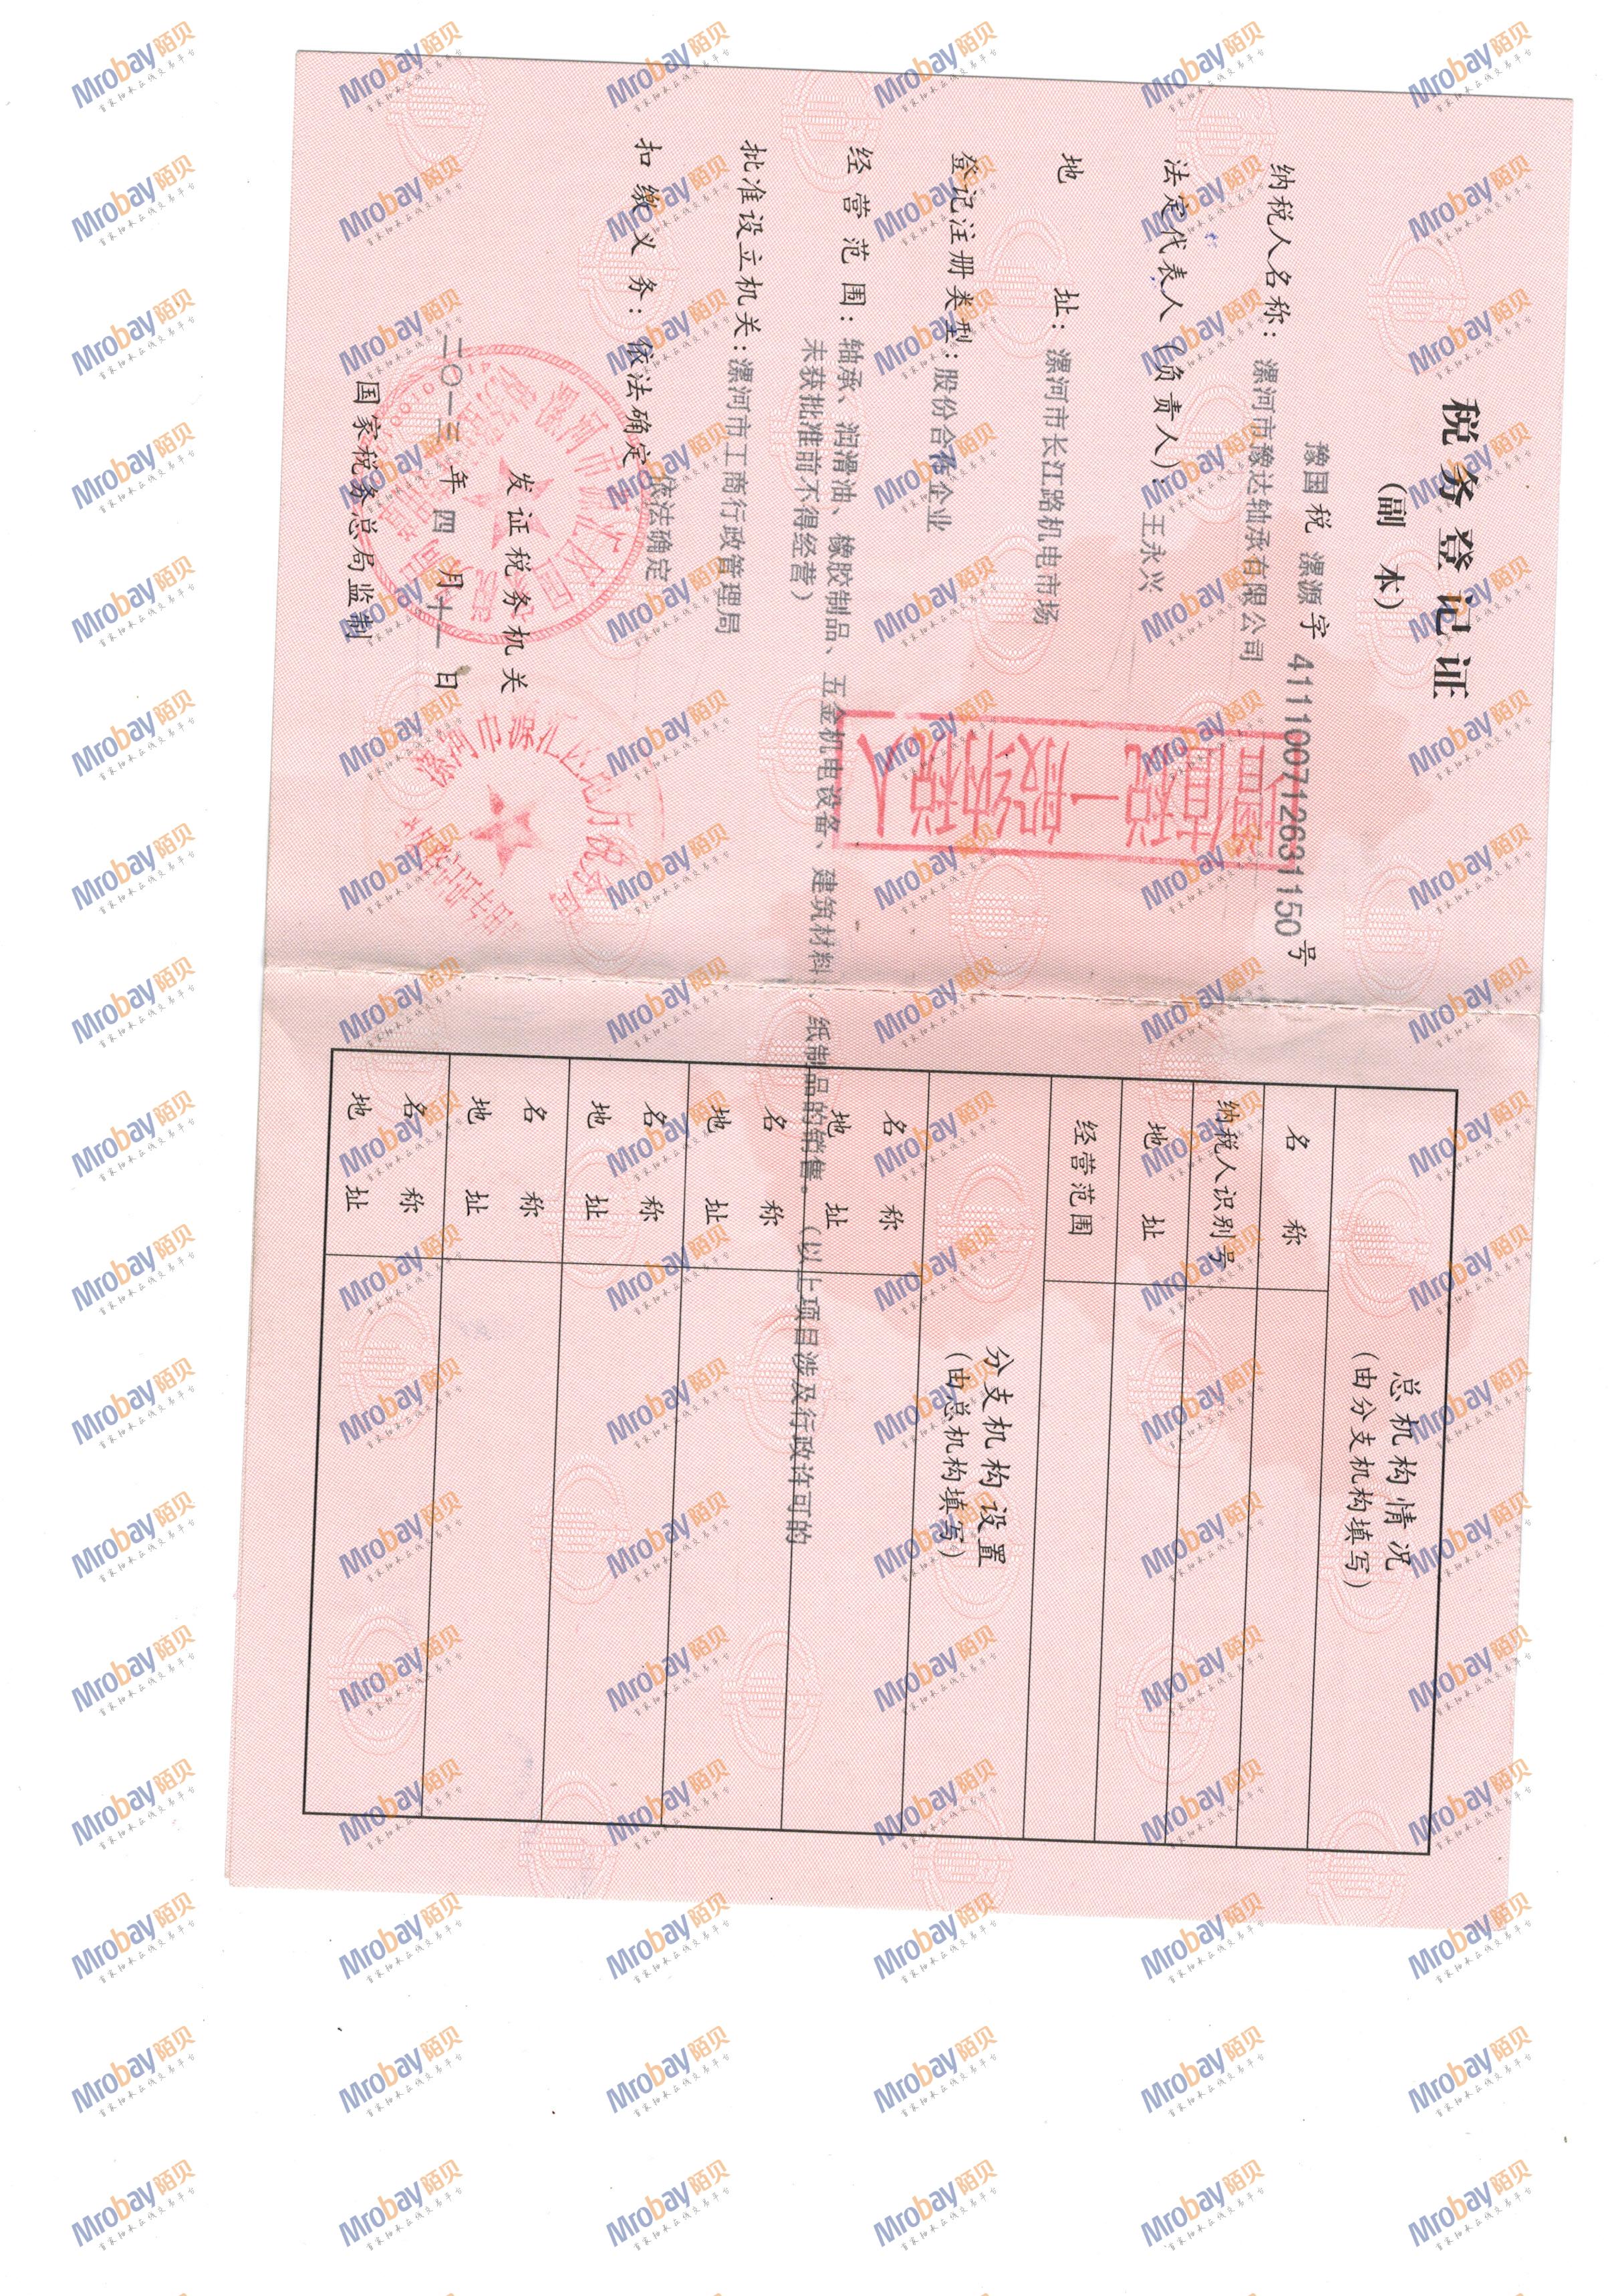 税务登记证
(副 本)
豫国 税 漯源 字 411100712631150 号
纳税人名称： 漯河市豫达轴承有限公司
法定代表人（负责人）： 王永兴
地 址： 漯河市长江路机电市场
登记注册类型：股份合作企业
经 营 范 围：轴承、润滑油、橡胶制品、五金机电设备、建筑材料、纸制品的销售。（以上项目涉及行政许可的
未获批准前不得经营）
批准设立机关：漯河市工商行政管理局
扣 缴 义 务：依法确定 依法确定
发 证 税 务 机 关
二〇一三 年 四 月 十一 日
国家税务总局监制
增值税一般纳税人
总机构情况
（由分支机构填写）
名 称
纳税人识别号
地 址
经营范围
分支机构设置
（由总机构填写）
名 称
地 址
名 称
地 址
名 称
地 址
名 称
地 址
名 称
地 址
Mrobay陌贝